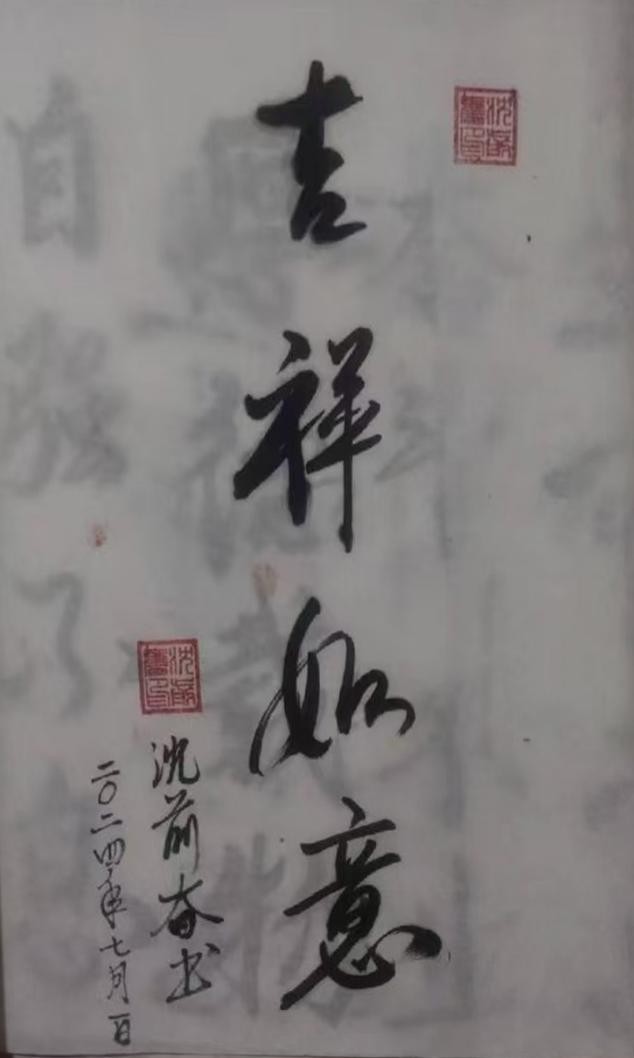 吉祥如意
沈前奋书
二〇二四年七月一日